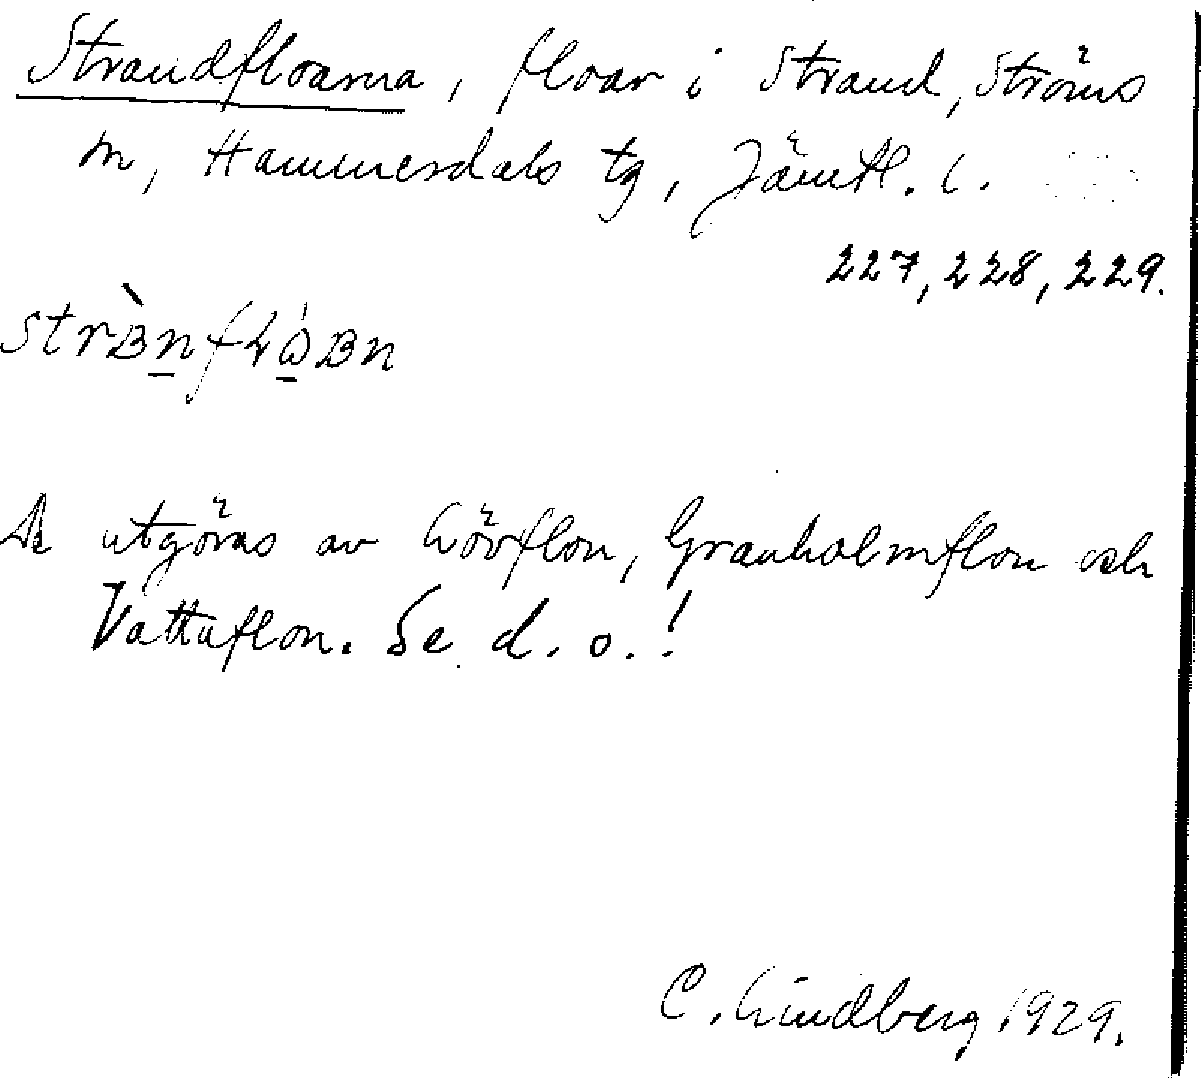 Strandfloarna, floar i Strand, Ströms
m, Hammerdals tg, Jämtl. l.
227, 228, 229.
De utgöras av Lövflon, Granholmflon och
Vattuflon. Se d. o.!
C. Lindberg 1929.